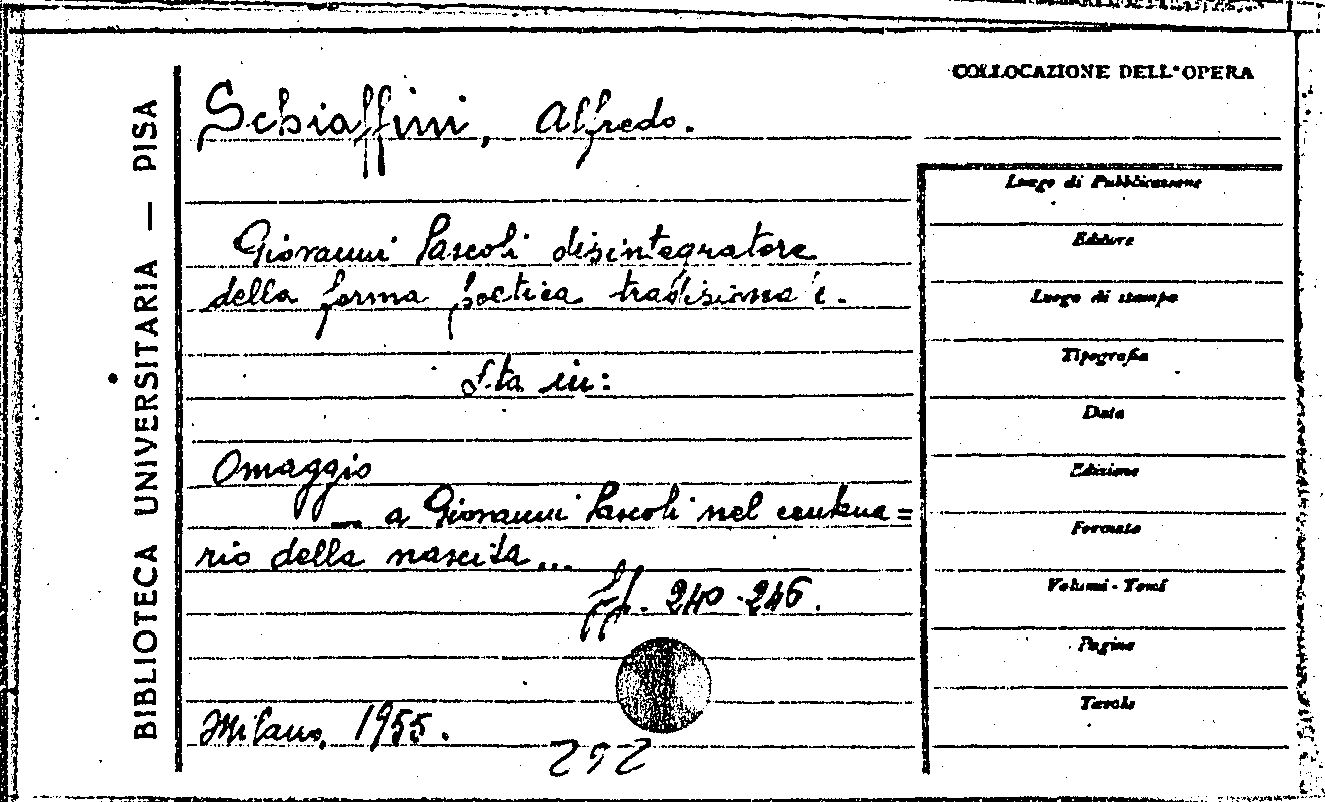 COLLOCAZIONE DELL'OPERA
BIBLIOTECA UNIVERSITARIA — PISA
Schiaffini, Alfredo.
Giovanni Pascoli disintegratore
della forma poetica tradiziona i.
Sta in:
Omaggio
— a Giovanni Pascoli nel centena=
rio della nascita...
pp. 240-246.
Milano, 1955.
252
Luogo di Pubblicazione
Editore
Luogo di stampa
Tipografia
Data
Edizione
Formato
Volumi - Tomi
Pagine
Tavole